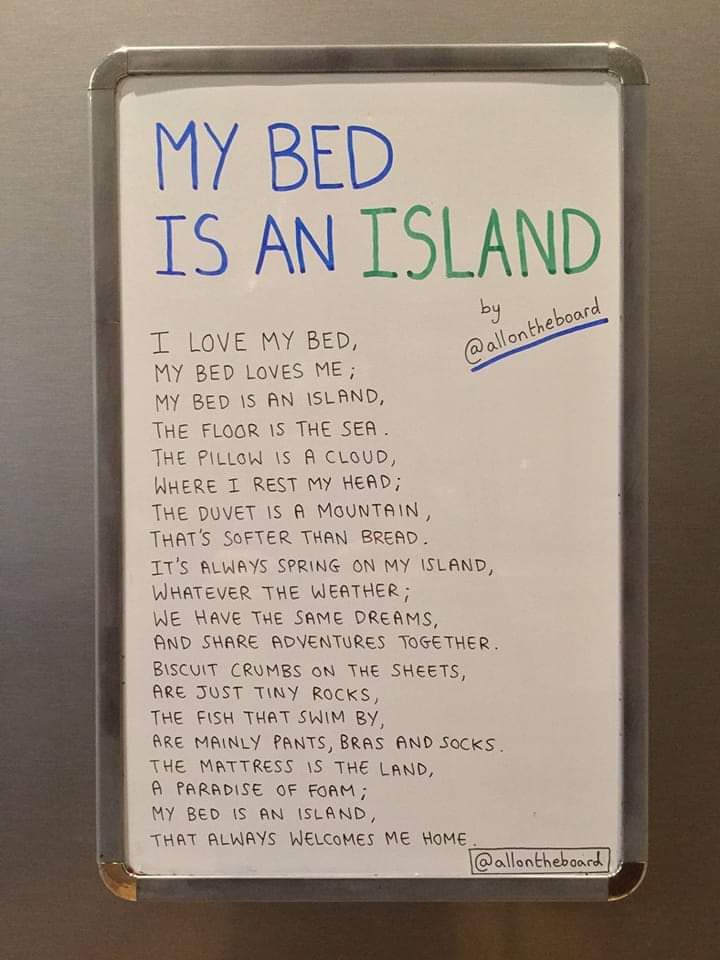 MY BED
IS AN ISLAND
by
@allontheboard
I LOVE MY BED,
MY BED LOVES ME;
MY BED IS AN ISLAND,
THE FLOOR IS THE SEA.
THE PILLOW IS A CLOUD,
WHERE I REST MY HEAD;
THE DUVET IS A MOUNTAIN,
THAT'S SOFTER THAN BREAD.
IT'S ALWAYS SPRING ON MY ISLAND,
WHATEVER THE WEATHER;
WE HAVE THE SAME DREAMS,
AND SHARE ADVENTURES TOGETHER.
BISCUIT CRUMBS ON THE SHEETS,
ARE JUST TINY ROCKS,
THE FISH THAT SWIM BY,
ARE MAINLY PANTS, BRAS AND SOCKS.
THE MATTRESS IS THE LAND,
A PARADISE OF FOAM;
MY BED IS AN ISLAND,
THAT ALWAYS WELCOMES ME HOME.
@allontheboard